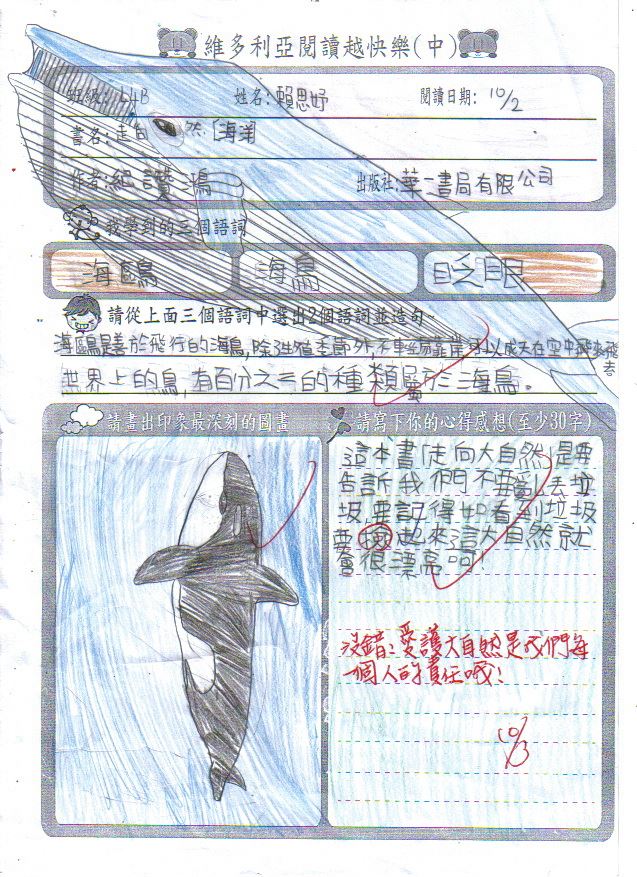 維多利亞閱讀越快樂(中)
班級: L4B 姓名: 賴思妤 閱讀日期: 10/2
書名: 走向 然 [海洋
作者: 紀讚鴻 出版社: 華一書局有限公司
我學到的三個語詞
海鷗 海鳥 眨眼
請從上面三個語詞中選出2個語詞並造句~
海鷗是善於飛行的海鳥,除殖季節外,不輕易靠岸,可以成天在空中飛來飛去
世界上的鳥,有百分之三的種類屬於海鳥。
請畫出印象最深刻的圖畫
請寫下你的心得感想(至少30字)
這本書[走向大自然]是要
告訴我們不要亂丟垃
圾,要記得如看到垃圾
要撿起來這大自然就
會很漂亮呵!
沒錯!愛護大自然是我們每
一個人的責任哦!
10/3